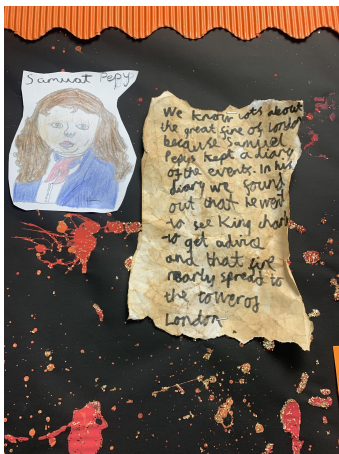 Samual Pepys
We know lots about
the great fire of London
because Samuel
Pepys kept a diary
of the events. In his
diary we found
out that he went
to see King charl
to get advice
and that fire
nearly spread to
the tower of
London